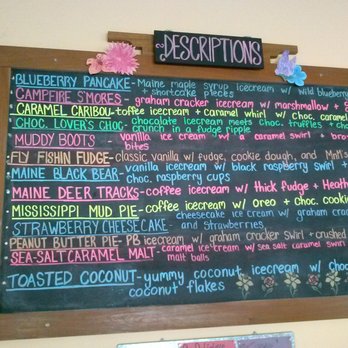 DESCRIPTIONS
BLUEBERRY PANCAKE- Maine maple syrup icecream w/ wild blueberry
+ shortcake pieces
CAMPFIRE S'MORES- graham cracker icecream w/ marshmallow +
CARAMEL CARIBOU- toffee icecream + caramel whirl w/ choc. caramel
CHOC. LOVER'S CHOC- chocolate icecream meets choc. truffles + choc
crunch in a fudge ripple
MUDDY BOOTS- vanilla ice cream w/ a caramel swirl +
bites
FLY FISHIN FUDGE- classic vanilla w/ fudge, cookie dough, and
MAINE BLACK BEAR- vanilla icecream w/ black raspberry swirl +
choc. raspberry cups
MAINE DEER TRACKS- coffee icecream w/ thick fudge + Heath
MISSISSIPPI MUD PIE- coffee icecream w/ oreo + choc. cookie
STRAWBERRY CHEESECAKE- cheesecake ice cream w/ graham
and strawberries
PEANUT BUTTER PIE- PB icecream w/ graham cracker swirl + crushed
SEA-SALT CARAMEL MALT- caramel ice cream w/ sea salt caramel swirl
+ malt balls
TOASTED COCONUT- yummy coconut icecream w/ choc
coconut flakes